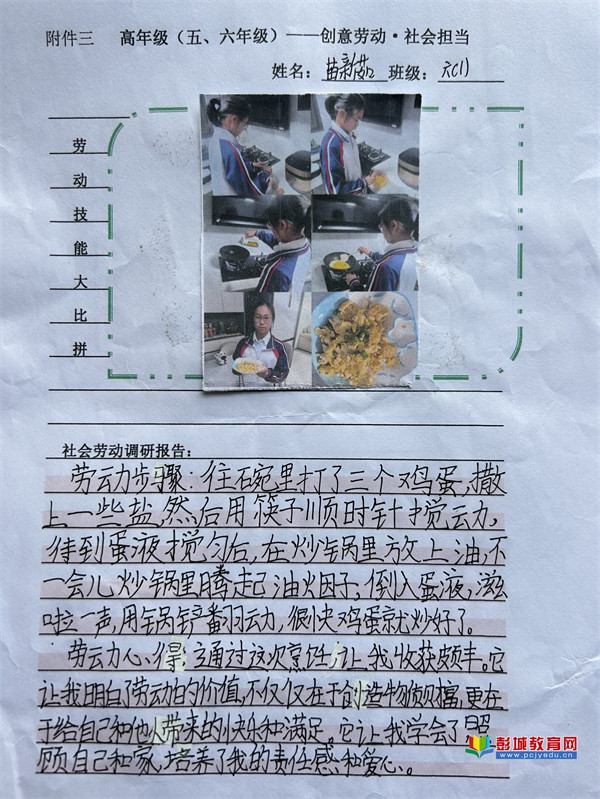 附件三 高年级（五、六年级）——创意劳动·社会担当
姓名：苗新茹 班级：六(1)
劳
动
技
能
大
比
拼
社会劳动调研报告：
劳动步骤：往碗里打了三个鸡蛋，撒
上一些盐，然后用筷子顺时针搅动，
待到蛋液搅匀后，在炒锅里放上油，不
一会儿炒锅里腾起油烟子，倒入蛋液，滋
啦一声，用锅铲翻动，很快鸡蛋就炒好了。
劳动心得：通过这次烹饪，让我收获颇丰。它
让我明白了劳动的价值，不仅仅在于创造物质财富，更在
于给自己和他人带来的快乐和满足。它让我学会了照
顾自己和家，培养了我的责任感和爱心。
彭城教育网
www.pcjyedu.cn